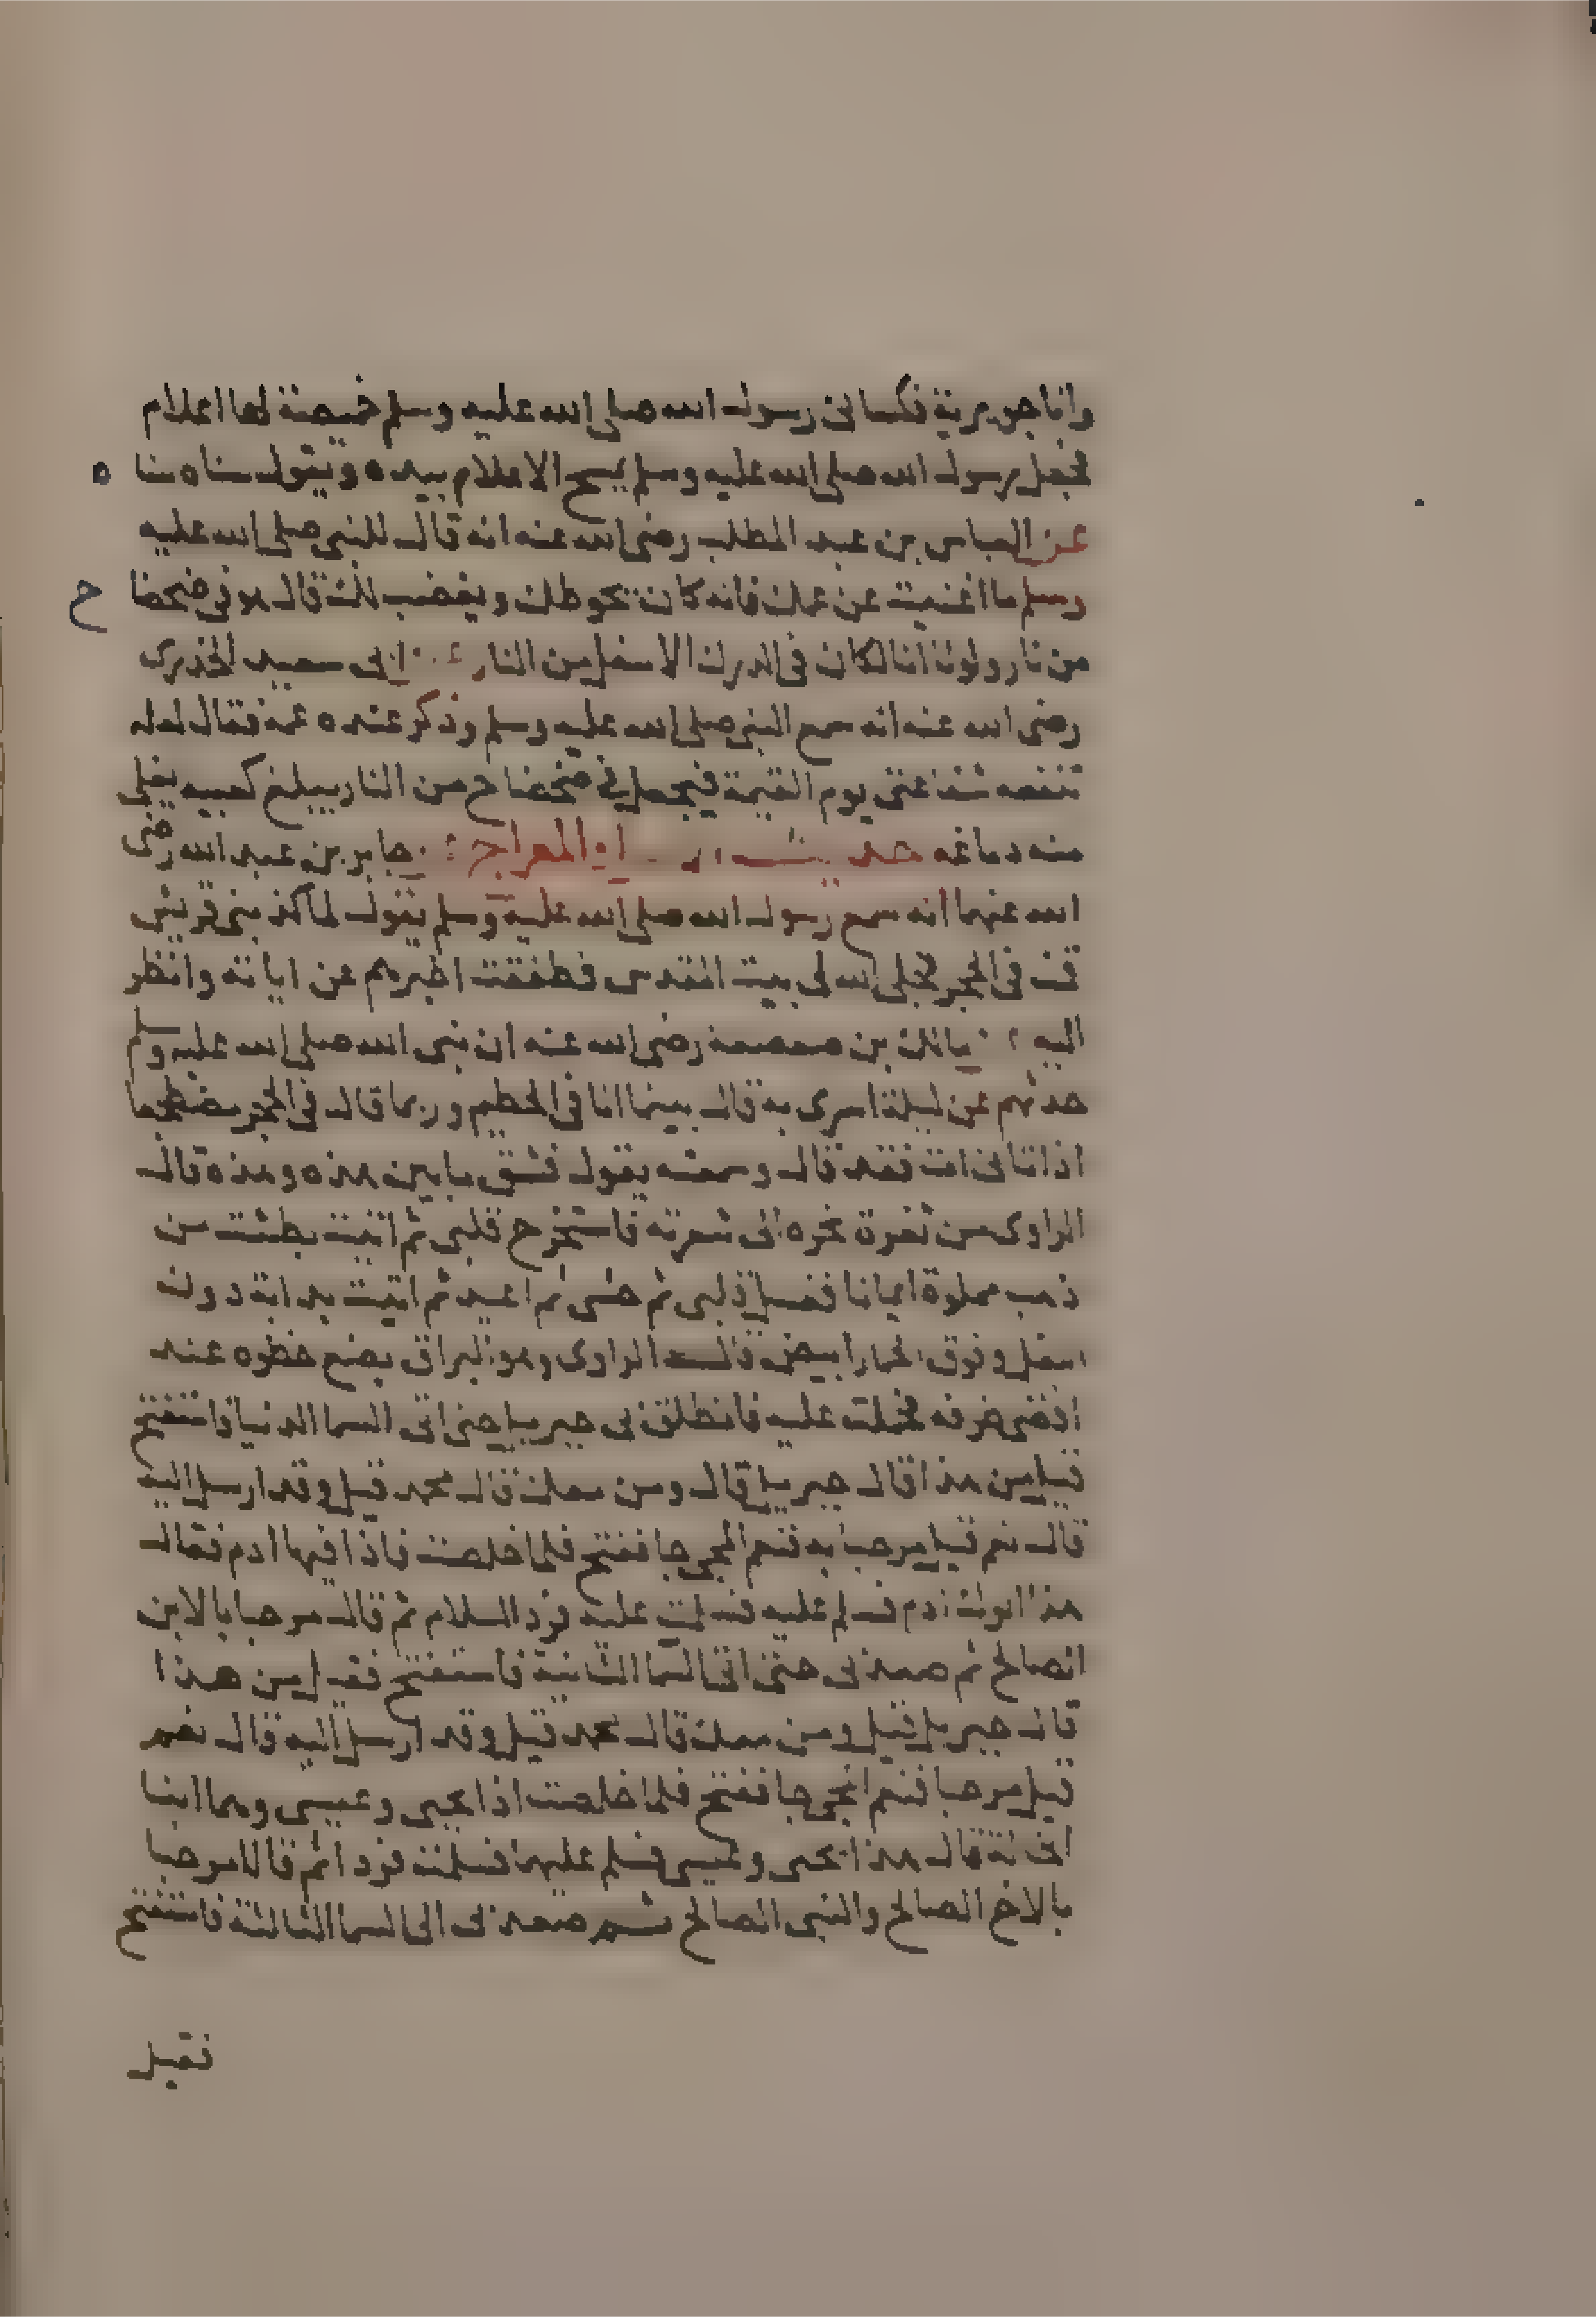 وانا جويرية فكسانى رسول الله صلى الله عليه وسلم خميصة لها اعلام
فجعل رسول الله صلى الله عليه وسلم يمسح الاعلام بيده ويقول سناه سنا ه
عن العباس بن عبد المطلب رضى الله عنه انه قال للنبى صلى الله عليه
وسلم ما اغنيت عن عمك فانه كان يحوطك ويغضب لك قال هو فى ضحضا ح
من نار ولولا انا لكان فى الدرك الاسفل من النار ابى سعيد الخدرى
رضى الله عنه انه سمع النبى صلى الله عليه وسلم وذكر عنده عمه فقال لعله
تنفعه شفاعتى يوم القيمة فيجعل فى ضحضاح من النار يبلغ كعبيه يغلى
منه دماغه حديث المعراج جابر بن عبد الله رضى
الله عنهما انه سمع رسول الله صلى الله عليه وسلم يقول لما كذبنى قريش
قمت فى الحجر فجلى الله لى بيت المقدس فطفقت اخبرهم عن اياته وانظر
اليه مالك بن صعصعة رضى الله عنه ان نبى الله صلى الله عليه وسلم
حدثهم عن ليلة اسرى به قال بينما انا فى الحطيم وربما قال فى الحجر مضطجعا
اذ اتانى ات فقد قال وسمعته يقول فشق ما بين هذه وهذه قال
الراوى من ثغرة نحره الى شعرته فاستخرج قلبى ثم اتيت بطشت من
ذهب مملوة ايمانا فغسل قلبى ثم حشى ثم اعيد ثم اتيت بدابة دون
البغل وفوق الحمار ابيض قال الراوى وهو البراق يضع خطوه عند
اقصى طرفه فحملت عليه فانطلق بى جبريل حتى اتى السما الدنيا فاستفتح
قيل من هذا قال جبريل قال ومن معك قال محمد قيل وقد ارسل اليه
قال نعم قيل مرحبا به فنعم المجى جا ففتح فلما خلصت فاذا فيها ادم فقال
هذا ابوك ادم فسلم عليه فسلمت عليه فرد السلام ثم قال مرحبا بالابن
الصالح ثم صعد بى حتى اتى السما الثانية فاستفتح فقيل من هذا
قال جبريل قيل ومن معك قال محمد قيل وقد ارسل اليه قال نعم
قيل مرحبا فنعم المجى جا ففتح فلما خلصت اذا يحيى وعيسى وهما ابنا
الخالة قال هذا يحيى وعيسى فسلم عليهما فسلمت فردا ثم قالا مرحبا
بالاخ الصالح والنبى الصالح ثم صعد بى الى السما الثالثة فاستفتح
فقيل